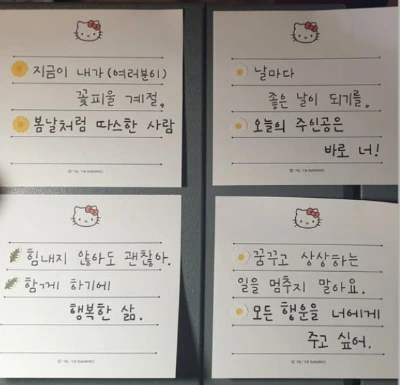 지금이 내가 (여러분이)
꽃피울 계절.
봄날처럼 따스한 사람
날마다
좋은 날이 되기를.
오늘의 주인공은
바로 너!
힘내지 않아도 괜찮아.
함께 하기에
행복한 삶.
꿈꾸고 상상하는
일을 멈추지 말아요.
모든 행운을 너에게
주고 싶어.